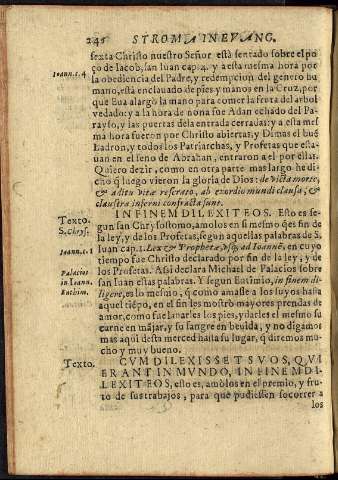 245 STROMA IN EVANG.
sexta Christo nuestro Señor està sentado sobre el po
ço de Iacob, san Iuan cap. 4. y a esta mesma hora por
Ioann. c. 4
la obediencia del Padre, y redempcion del genero hu
mano, està enclauado de pies y manos en la Cruz, por
que Eua alargò la mano para comer la fruta del arbol
vedado: y a la hora de nona fue Adan echado del Pa-
rayso, y las puertas dèl a entrada cerradas: y a esta mes
ma hora fueron por Christo abiertas, y Dimas el buẽ
Ladron, y todos los Patriarchas, y Profetas que esta-
uan en el seno de Abrahan, entraron a el por ellas.
Quiero dezir, como en otra parte mas largo he di-
cho q̃ luego vieron la gloria de Dios: de victa morte,
& aditu vitæ reserato, ab exordio mundi clausa, &
claustra inferni confracta sunt.
Texto.
IN FINEM DILEXIT EOS. Esto es se-
S. Chrys.
gun san Chrysostomo, amolos en si mesmo q̃ es fin de
la ley, y de los Profetas, segun aquellas palabras de S.
Ioann. c. 1
Iuan cap. 1. Lex & Prophetæ vsq; ad Ioannẽ, en cuyo
tiempo fue Christo declarado por fin de la ley, y de
Palacios
in Ioann.
los Profetas. Assi declara Michael de Palacios sobre
Euthim.
san Iuan estas palabras. Y segun Eutimio, in finem di-
ligere, es lo mesmo, q̃ como amasse a los suyos hasta
aquel tiẽpo, en el fin les mostrò mayores prendas de
amor, como fue lauarles los pies, y darles el mesmo su
carne en mãjar, y su sangre en beuida, y no digamos
mas aqui desta merced hasta su lugar, q̃ diremos mu-
cho y muy bueno.
Texto.
CVM DILEXISSET SVOS, QVI
ERANT IN MVNDO, IN FINEM DI-
LEXIT EOS, esto es, amòlos en el premio, y fru-
to de sus trabajos, para que pudiessen socorrer a
los